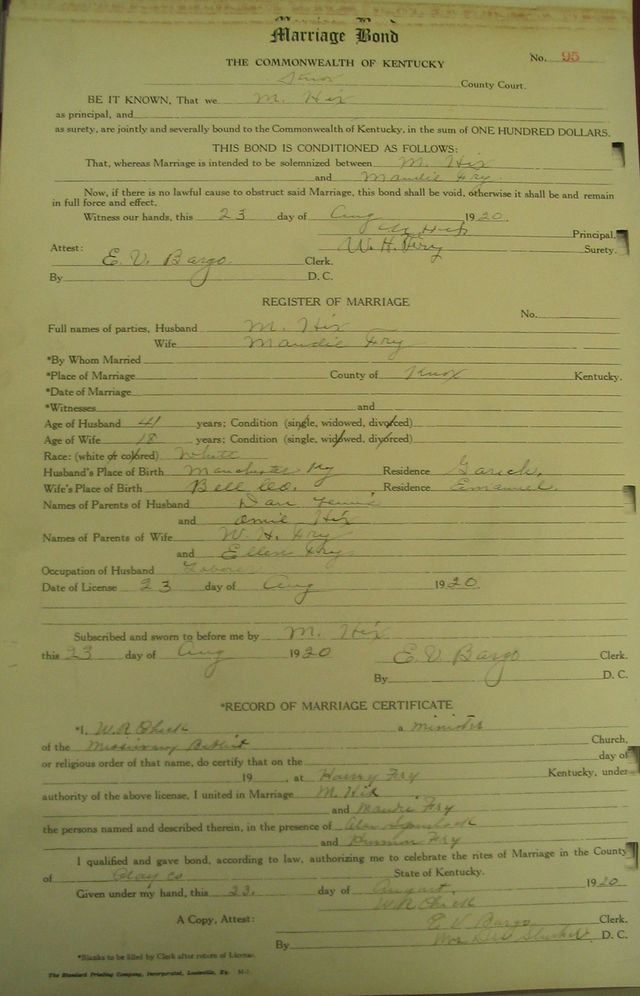 Marriage Bond
THE COMMONWEALTH OF KENTUCKY
No. 95
Knox County Court.
BE IT KNOWN, That we M. Hix
as principal, and
as surety, are jointly and severally bound to the Commonwealth of Kentucky, in the sum of ONE HUNDRED DOLLARS.
THIS BOND IS CONDITIONED AS FOLLOWS:
That, whereas Marriage is intended to be solemnized between M. Hix
and Maudie Fry.
Now, if there is no lawful cause to obstruct said Marriage, this bond shall be void, otherwise it shall be and remain
in full force and effect.
Witness our hands, this 23 day of Aug 1920.
Principal.
W. H. Fry Surety.
Attest: E. V. Bargo Clerk.
By D. C.
REGISTER OF MARRIAGE
No.
Full names of parties, Husband M. Hix
Wife Maudie Fry
*By Whom Married
*Place of Marriage County of Knox Kentucky.
*Date of Marriage
*Witnesses and
Age of Husband 41 years; Condition (single, widowed, divorced)
Age of Wife 18 years; Condition (single, widowed, divorced)
Race: (white or colored) White
Husband's Place of Birth Manchester Ky Residence
Wife's Place of Birth Bell Co. Residence Emanuel.
Names of Parents of Husband Dan
and Omie Hix
Names of Parents of Wife W. H. Fry
and Ellen Fry
Occupation of Husband Laborer
Date of License 23 day of Aug 1920
Subscribed and sworn to before me by M. Hix
this 23 day of Aug 1920 E. V. Bargo Clerk.
By D. C.
*RECORD OF MARRIAGE CERTIFICATE
*I, W. R. Chick a minister
of the Missionary Baptist Church,
or religious order of that name, do certify that on the day of
19 , at Harry Fry Kentucky, under
authority of the above license, I united in Marriage M. Hix
and Maudie Fry
the persons named and described therein, in the presence of
and Herman Fry
I qualified and gave bond, according to law, authorizing me to celebrate the rites of Marriage in the County
of Clay Co State of Kentucky.
Given under my hand, this 23. day of August, 1920
W. R. Chick
A Copy, Attest: E V Bargo Clerk.
By D. C.
*Blanks to be filled by Clerk after return of License.
The Standard Printing Company, Incorporated, Louisville, Ky. M-1